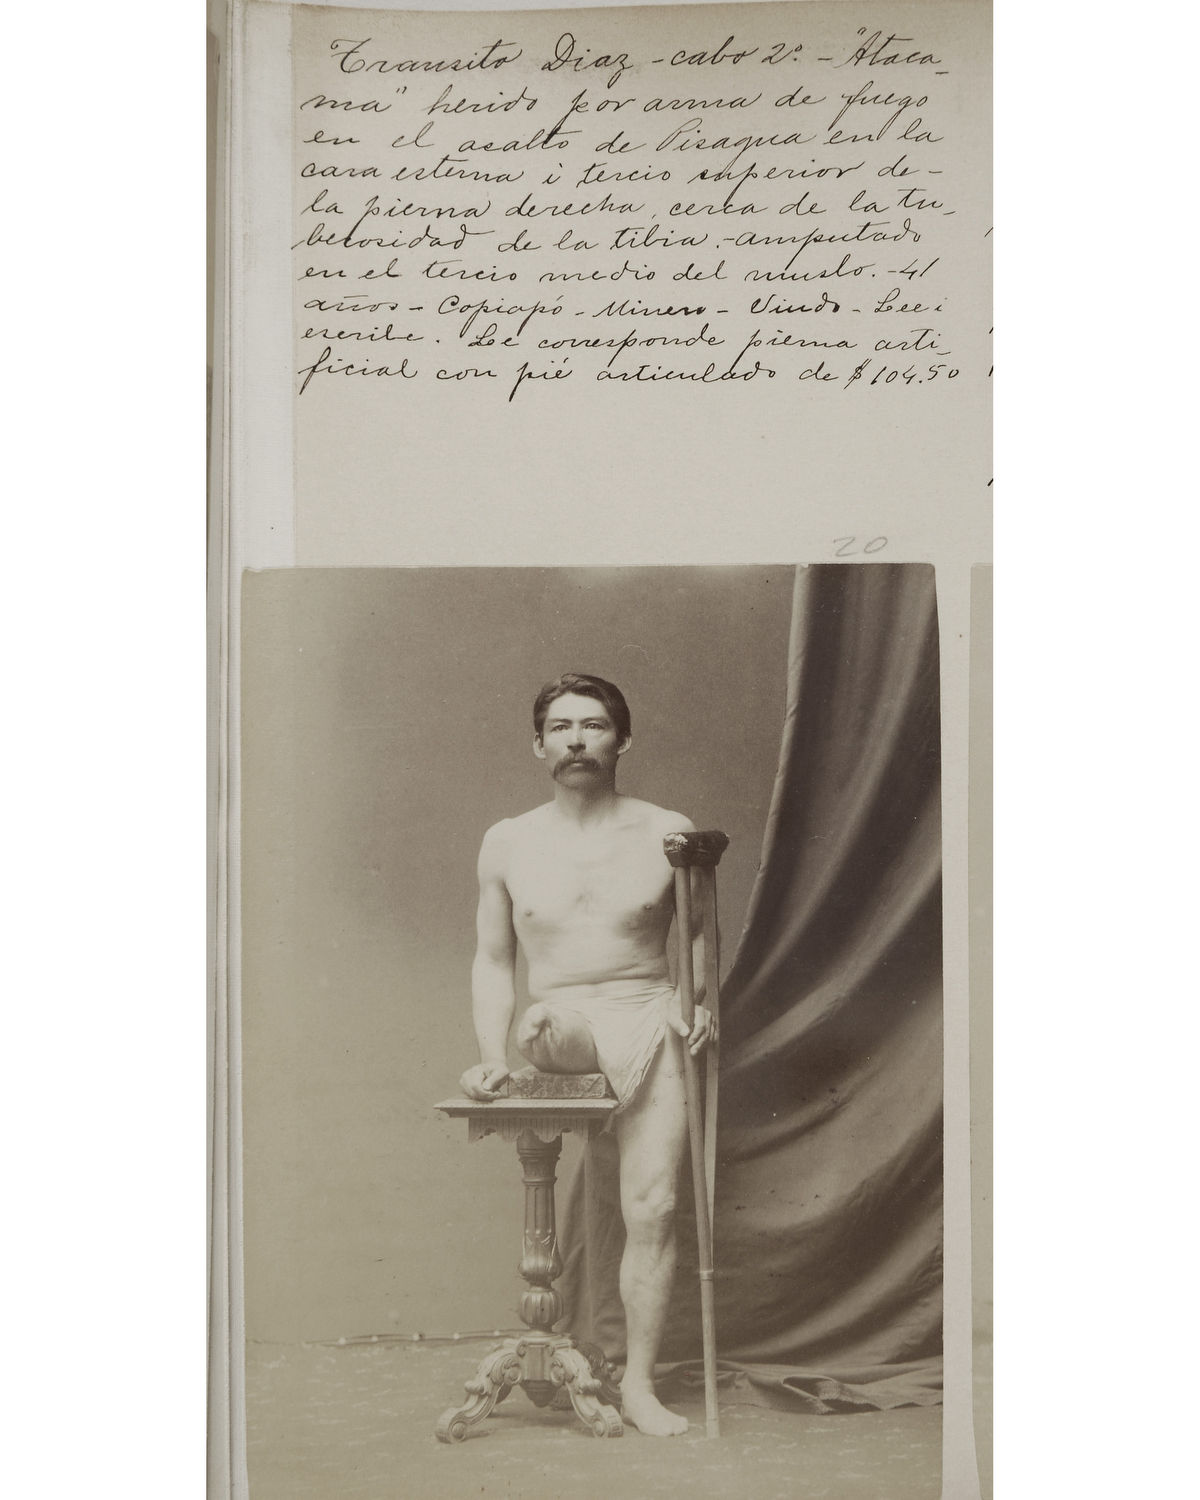 Transito Diaz - cabo 2º. - "Ataca-
ma" herido por arma de fuego
en el asalto de Pisagua en la
cara esterna i tercio superior de-
la pierna derecha, cerca de la tu-
berosidad de la tibia. - amputado
en el tercio medio del muslo. - 41
años - Copiapó - Minero - Viudo - Lee i
escribe. Le corresponde pierna arti-
ficial con pié articulado de $104.50
20